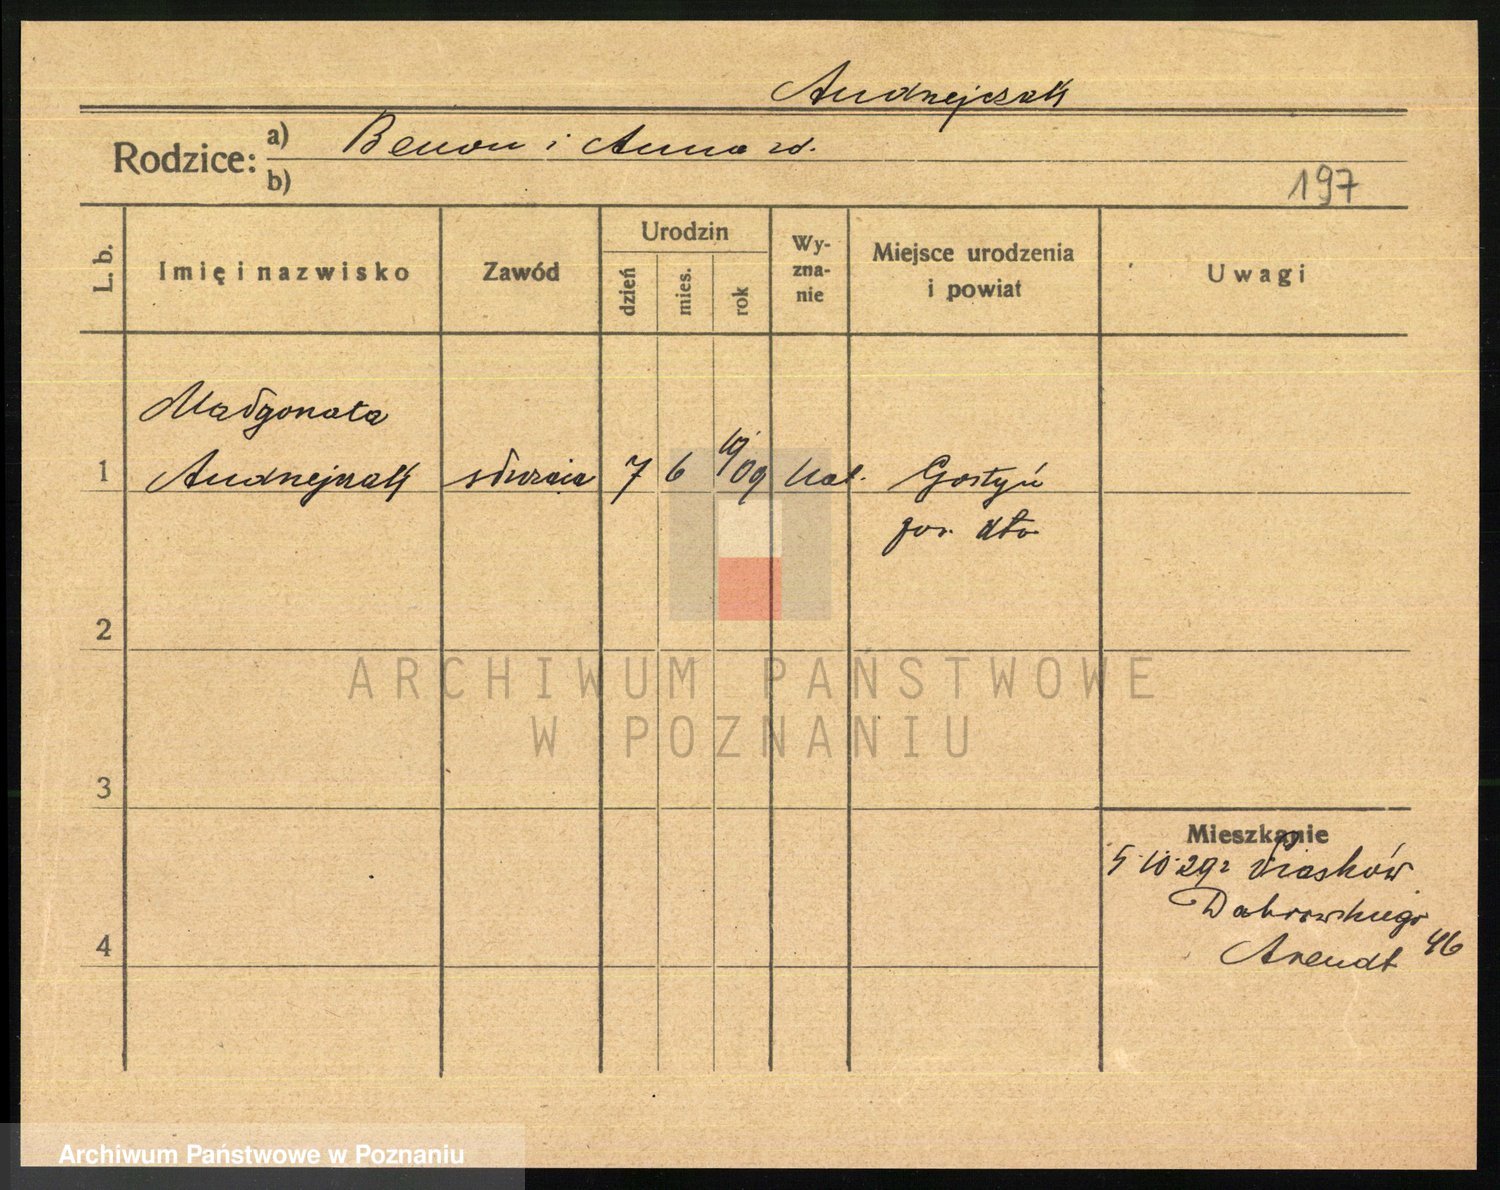 Andrzejczak
Rodzice: a) Benon i Anna zd.
b)
197
L. b.
Imię i nazwisko
Zawód
Urodzin
dzień
mies.
rok
Wy-
zna-
nie
Miejsce urodzenia
i powiat
Uwagi
Małgorzata
1 Andrzejczak służąca 7 6 19/09 kat. Gostyń
pow. dto
2
ARCHIWUM PAŃSTWOWE
W POZNANIU
3
Mieszkanie
5.10.29r Piasków
Dabrowskiego
46
4
Arendt
Archiwum Państwowe w Poznaniu